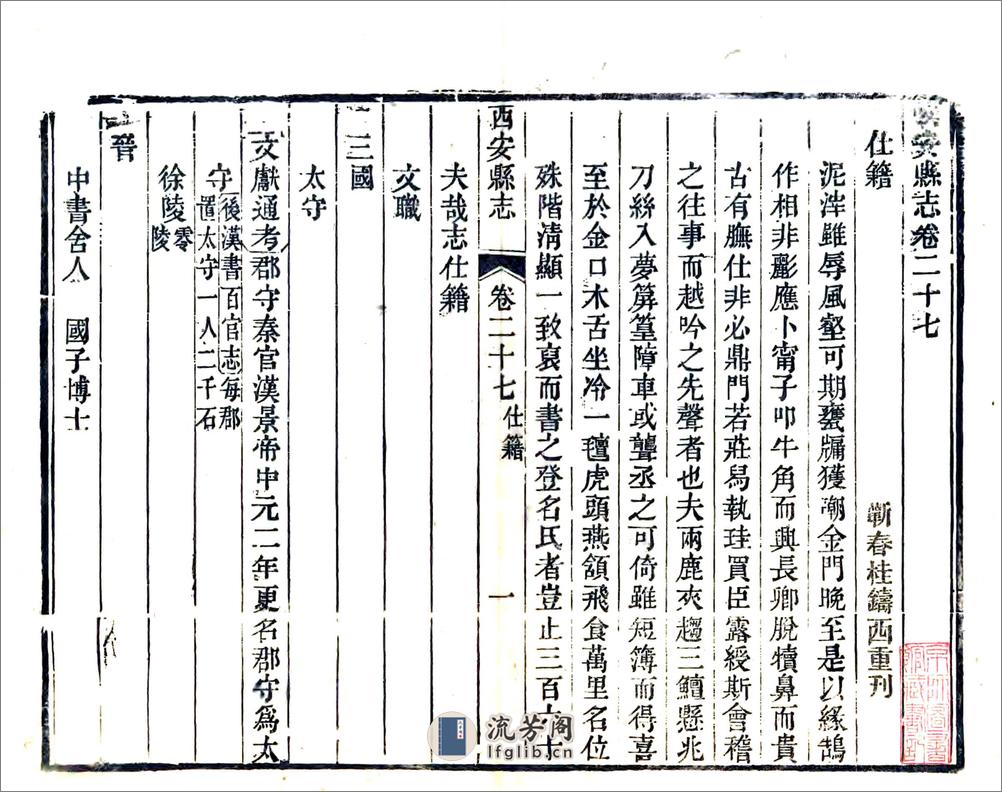 西安縣志卷二十七
仕籍
蘄春桂鑄西重刊
泥滓雖辱風壑可期甕牖獲潮金門晚至是以緣鵠
作相非彲應卜甯子叩牛角而興長卿脫犢鼻而貴
古有膴仕非必鼎門若莊舄執珪買臣露綬斯會稽
之往事而越吟之先聲者也夫兩鹿夾趨三鱣懸兆
刀絲入夢箳篁障車或聾丞之可倚雖短簿而得喜
至於金口木舌坐冷一氊虎頭燕頷飛食萬里名位
殊階清顯一致裒而書之登名氏者豈止三百六十
西安縣志
卷二十七
仕籍
一
夫哉志仕籍
文職
三國
太守
文獻通考郡守秦官漢景帝中元二年更名郡守爲太
守後漢書百官志每郡
置太守一人二千石
徐陵零
陵
晉
中書舍人 國子博士
流芳阁
lfglib.cn